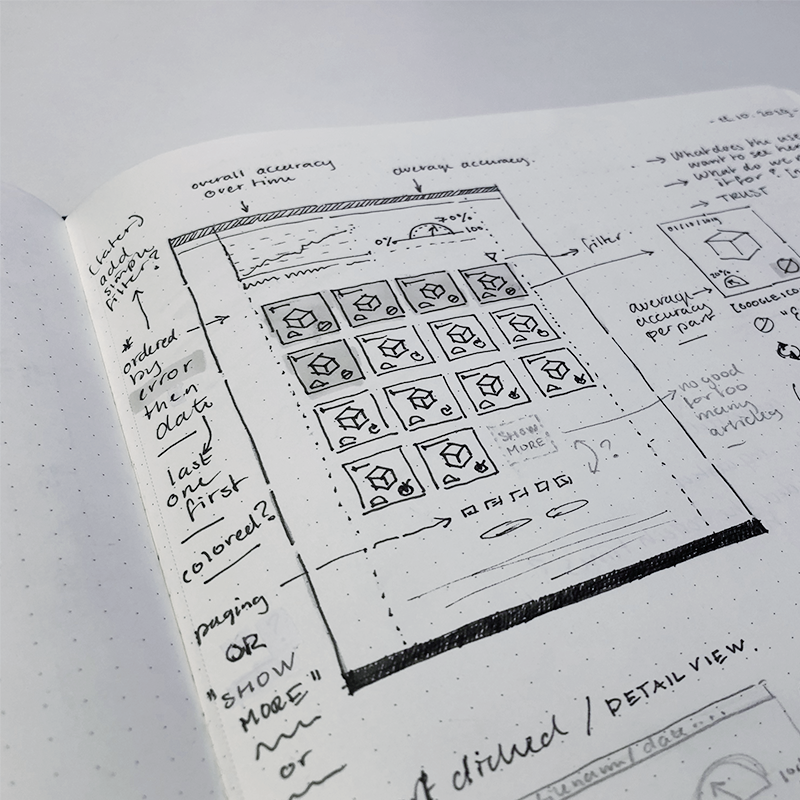 overall accuracy
over time
average accuracy.
What does the use
want to see her
What do we
it for?
TRUST
(later)
add
simple
filter?
70%
0%
100
filter
01/10/2019
20%
average
accuracy
per part
[GOOGLE ICO
* ordered
by
error
then
date
last
one
first
colored?
SHOW
MORE
?
no good
for too
many
articles
paging
OR
"SHOW
MORE"
or
clicked / DETAIL VIEW.
filename / date....